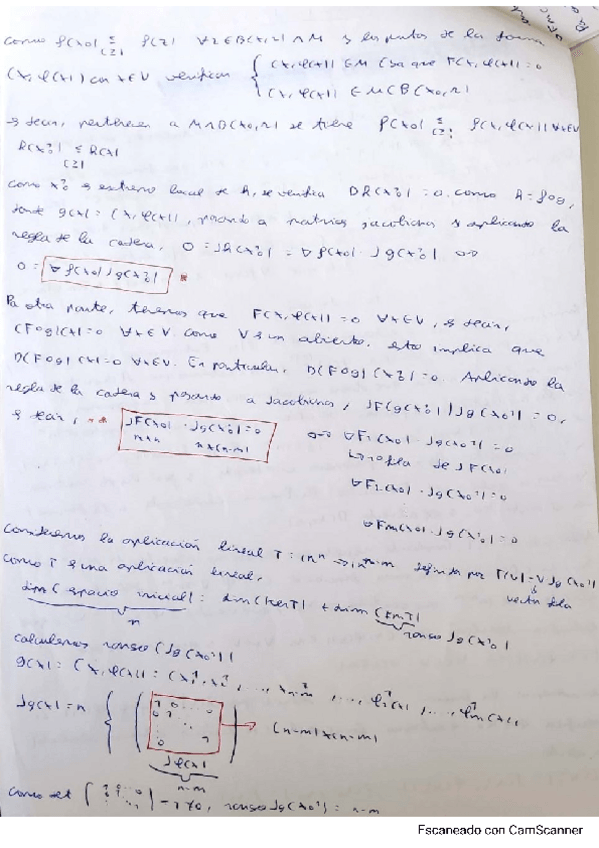 Como f(x0) ≤ f(z) ∀z∈B(x0,r)∩M y los puntos de la forma
(≥)
(x,φ(x)) con x∈V verifican { (x,φ(x))∈M (ya que F(x,φ(x))=0
(x,φ(x)) ∈ M⊂B(x0,r)
es decir, pertenecen a M∩B(x0,r) se tiene f(x0) ≤ f(x,φ(x)) ∀x∈V
(≥)
h(x0¹) ≤ h(x)
(≥)
Como x0¹ es extremo local de h, se verifica Dh(x0¹)=0. Como h=f∘g,
donde g(x)=(x,φ(x)), pasando a matrices jacobianas y aplicando la
regla de la cadena, 0=Jh(x0¹)=∇f(x0)·Jg(x0¹) ⇔
0=∇f(x0)Jg(x0¹) *
Por otra parte, tenemos que F(x,φ(x))=0 ∀x∈V, es decir,
(F∘g)(x)=0 ∀x∈V. Como V es un abierto, esto implica que
D(F∘g)(x)=0 ∀x∈V. En particular, D(F∘g)(x0¹)=0. Aplicando la
regla de la cadena y pasando a Jacobianas, JF(g(x0¹))Jg(x0¹)=0,
es decir, ** JF(x0)·Jg(x0¹)=0 ⇔ ∇F1(x0)·Jg(x0¹)=0
m×n n×(n-m) ↳ 1ª fila de JF(x0)
∇F2(x0)·Jg(x0¹)=0
∇Fm(x0)·Jg(x0¹)=0
Consideremos la aplicación lineal T: ℝⁿ→ℝⁿ⁻ᵐ definida por T(v)=v Jg(x0¹)
vector fila
Como T es una aplicación lineal,
dim(espacio inicial) = dim(KerT) + dim(ImT)
n rango Jg(x0¹)
calculemos rango(Jg(x0¹))
g(x)=(x,φ(x))=
Jg(x)=n (n-m)×(n-m)
Jφ(x)
n-m
Como det =1≠0, rango Jg(x0¹)=n-m
Escaneado con CamScanner